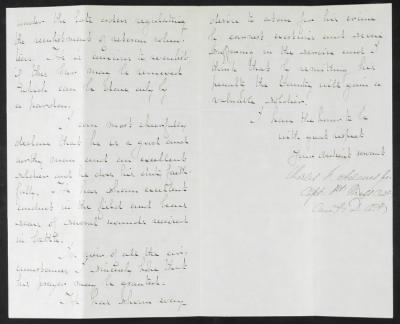 under the late orders regulating
the reenlistment of veteran volun-
teers. He is anxious to reenlist
if this bar may be removed
which can be done only by
a pardon.
I can most cheerfully
declare that he is a good and
worthy man and an excellent
soldier and he does his duty faith
fully. He has shown excellent
conduct in the field and bears
scars of several wounds received
in battle.
In view of all the cir-
cumstances I sincerely hope that
his prayer may be granted.
He has shown every
desire to atone for his crime
by earnest exertions and severe
sufferings in the service and I
think that by remitting his
penalty the Country will gain a
valuable soldier.
I have the honor to be
with great respect
Your obedient servant
Charles F.
Capt. 1st Mass